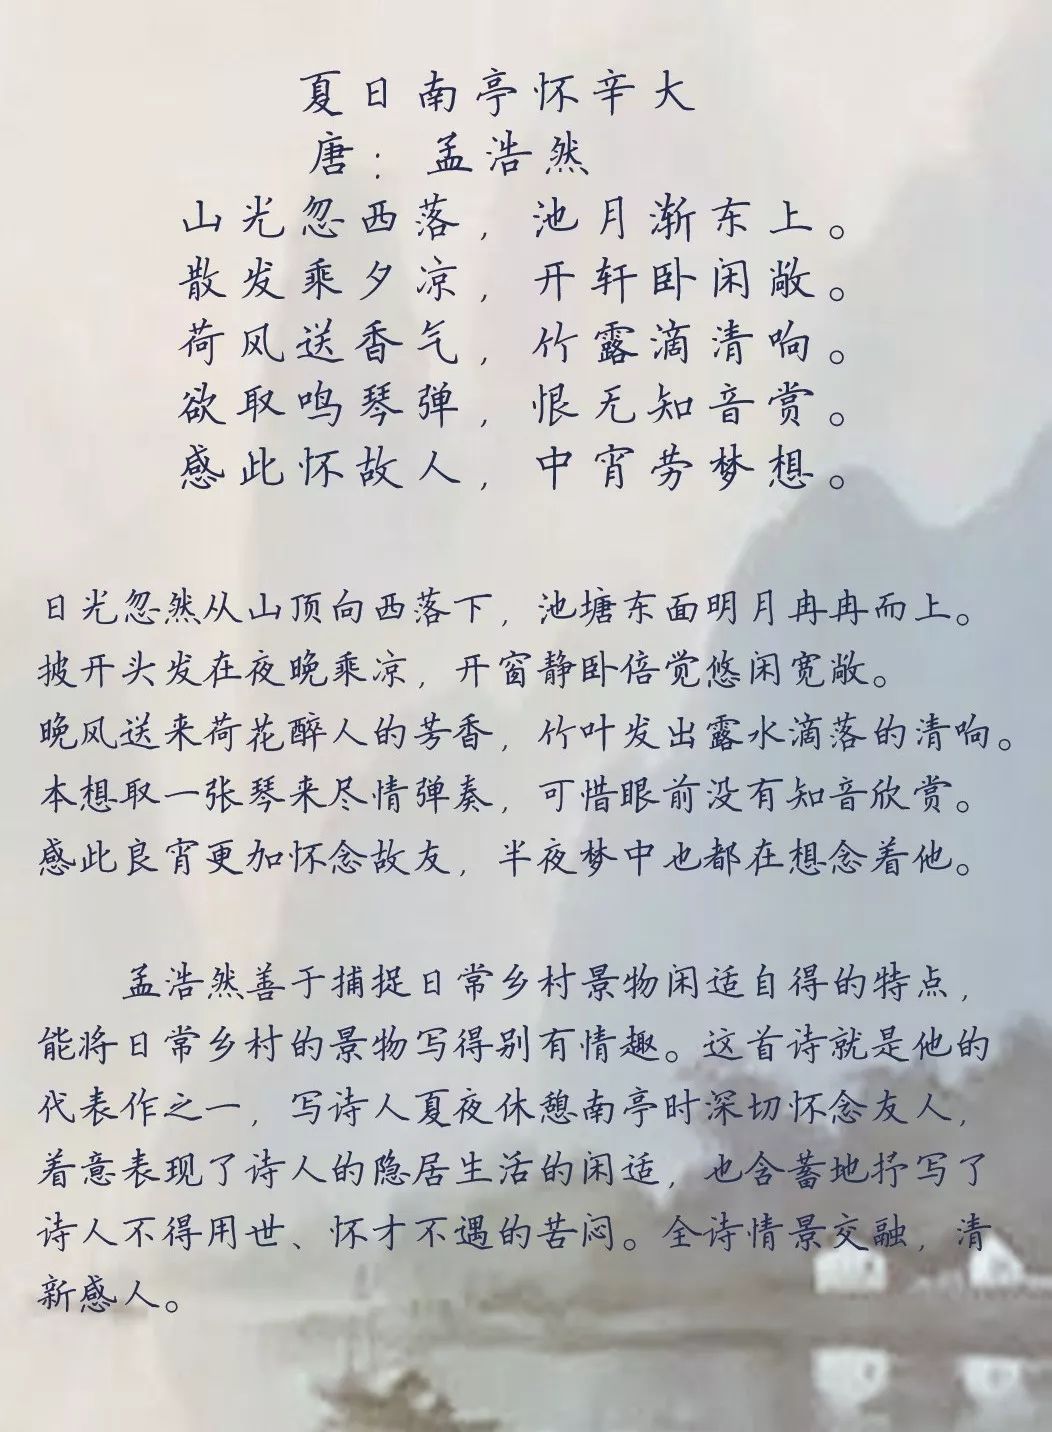 夏日南亭怀辛大
唐：孟浩然
山光忽西落，池月渐东上。
散发乘夕凉，开轩卧闲敞。
荷风送香气，竹露滴清响。
欲取鸣琴弹，恨无知音赏。
感此怀故人，中宵劳梦想。
日光忽然从山顶向西落下，池塘东面明月冉冉而上。
披开头发在夜晚乘凉，开窗静卧倍觉悠闲宽敞。
晚风送来荷花醉人的芳香，竹叶发出露水滴落的清响。
本想取一张琴来尽情弹奏，可惜眼前没有知音欣赏。
感此良宵更加怀念故友，半夜梦中也都在想念着他。
孟浩然善于捕捉日常乡村景物闲适自得的特点，
能将日常乡村的景物写得别有情趣。这首诗就是他的
代表作之一，写诗人夏夜休憩南亭时深切怀念友人，
着意表现了诗人的隐居生活的闲适，也含蓄地抒写了
诗人不得用世、怀才不遇的苦闷。全诗情景交融，清
新感人。